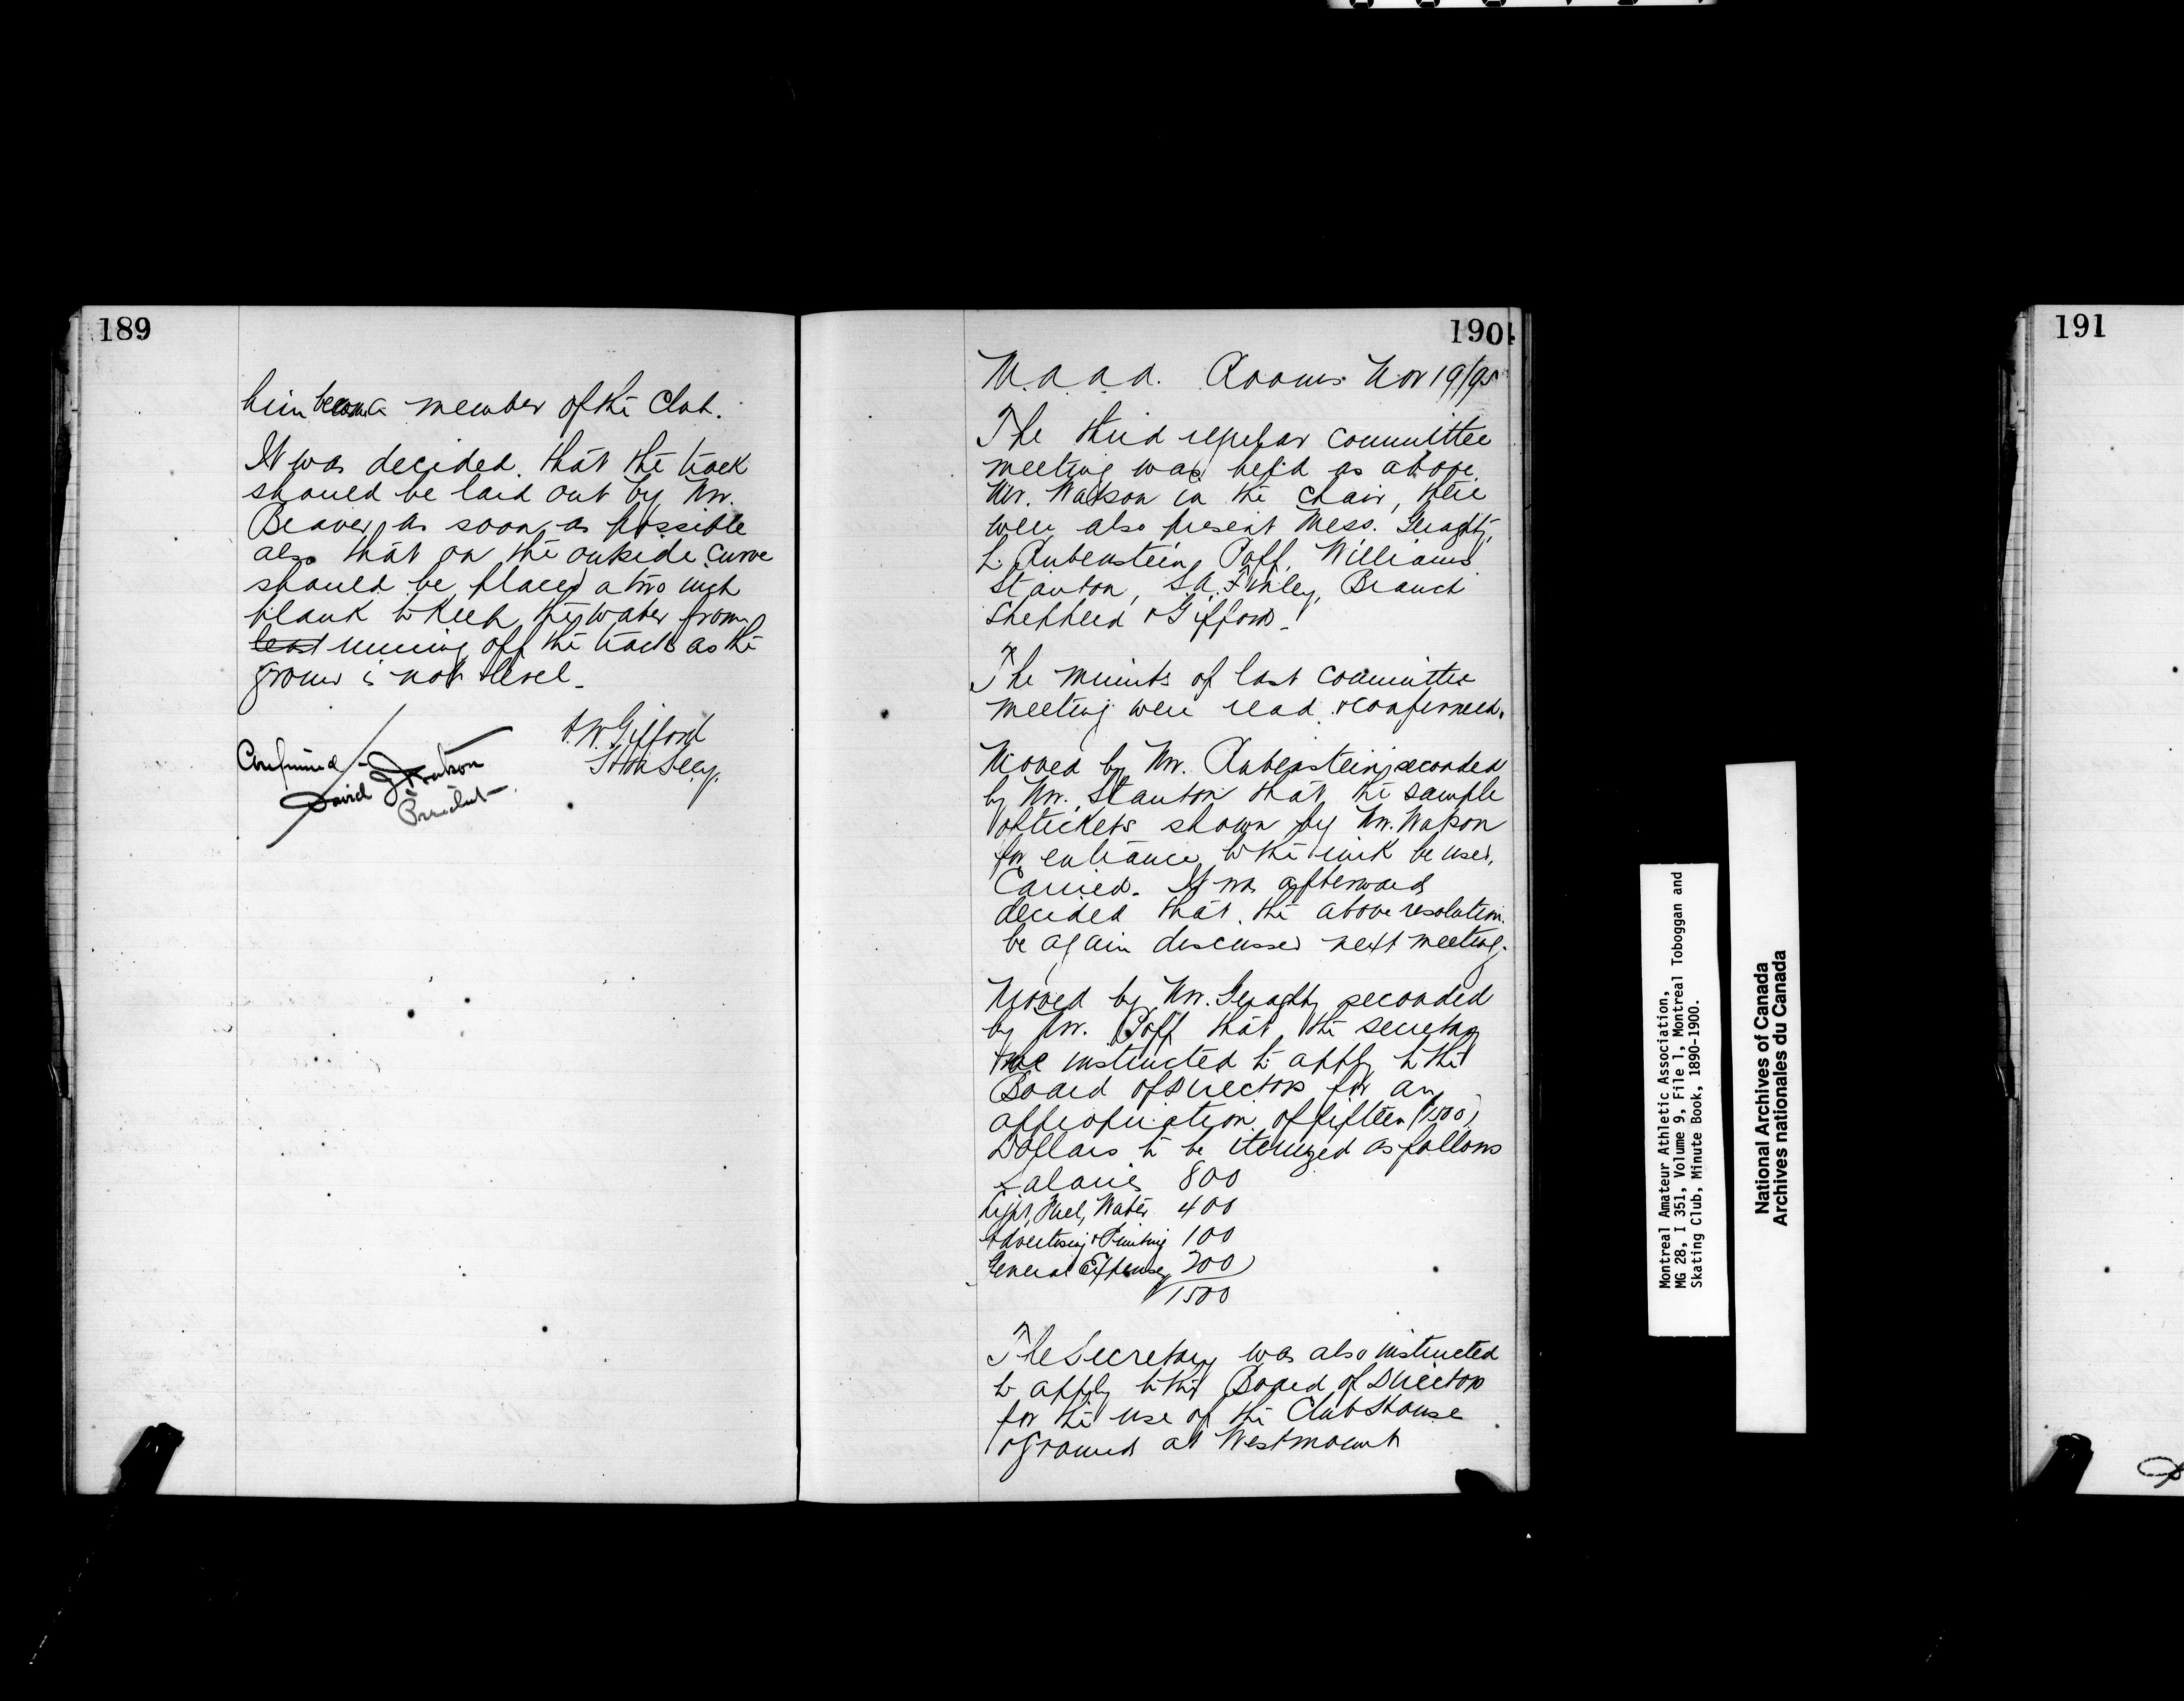 189
him become a member of the Club.
It was decided that the track
should be laid out by Mr.
Beaver as soon as possible
also that on the outside curve
should be placed a two inch
plank to keep the water from
least running off the track as the
ground is not level.
A. W. Gifford
Hon Secy.
Confirmed -
David J. Watson
President
190
M.A.A.A. Rooms Nov 19/95
The third regular committee
meeting was held as above
Mr. Watson in the chair, there
were also present Mess. Geraghty,
L. Rubenstein, Poff, Williams
Stanton, S.A. Finley, Branch
Shepherd & Gifford.
The minuts of last committee
meeting were read & confirmed.
Moved by Mr. Rubenstein, seconded
by Mr. Stanton that the sample
of tickets shown by Mr. Watson
for entrance to the rink be used.
Carried. It was afterwards
decided that the above resolution
be again discussed next meeting.
Moved by Mr. Geraghty seconded
by Mr. Poff that the secretary
be instructed to apply to the
Board of Directors for an
appropriation of fifteen (1500)
Dollars to be itemized as follows
Salaries 800
Light, Fuel, Water 400
Advertising & Printing 100
General Expenses 200
1500
The Secretary was also instructed
to apply to the Board of Directors
for the use of the Club House
& grounds at Westmount
Montreal Amateur Athletic Association,
MG 28, I 351, Volume 9, File 1, Montreal Toboggan and
Skating Club, Minute Book, 1890-1900.
National Archives of Canada
Archives nationales du Canada
191